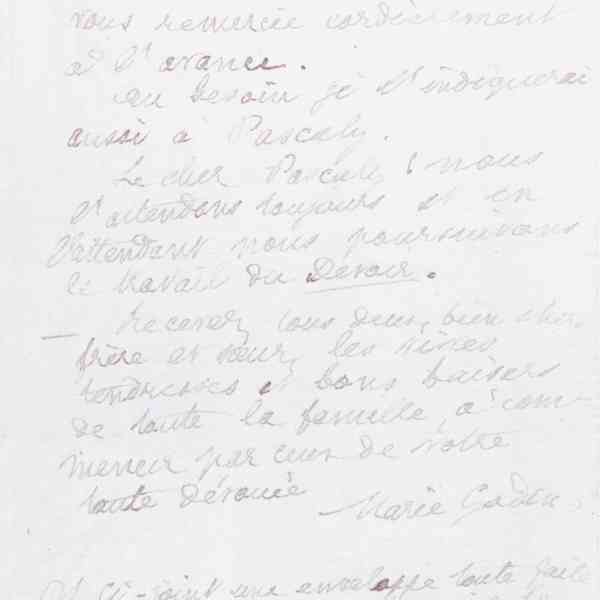 vous remercie cordialement
à l'avance.
au besoin je l'indiquerai
aussi à Pascaly.
Le cher Pascaly ! nous
l'attendons toujours et en
l'attendant nous poursuivons
le travail du Devoir.
— Recevez tous deux, bien cher
frère et sœur, les
tendresses et bons baisers
de toute la famille, à com-
mencer par ceux de votre
toute dévouée
Marie Godin
ci-joint une enveloppe toute faite